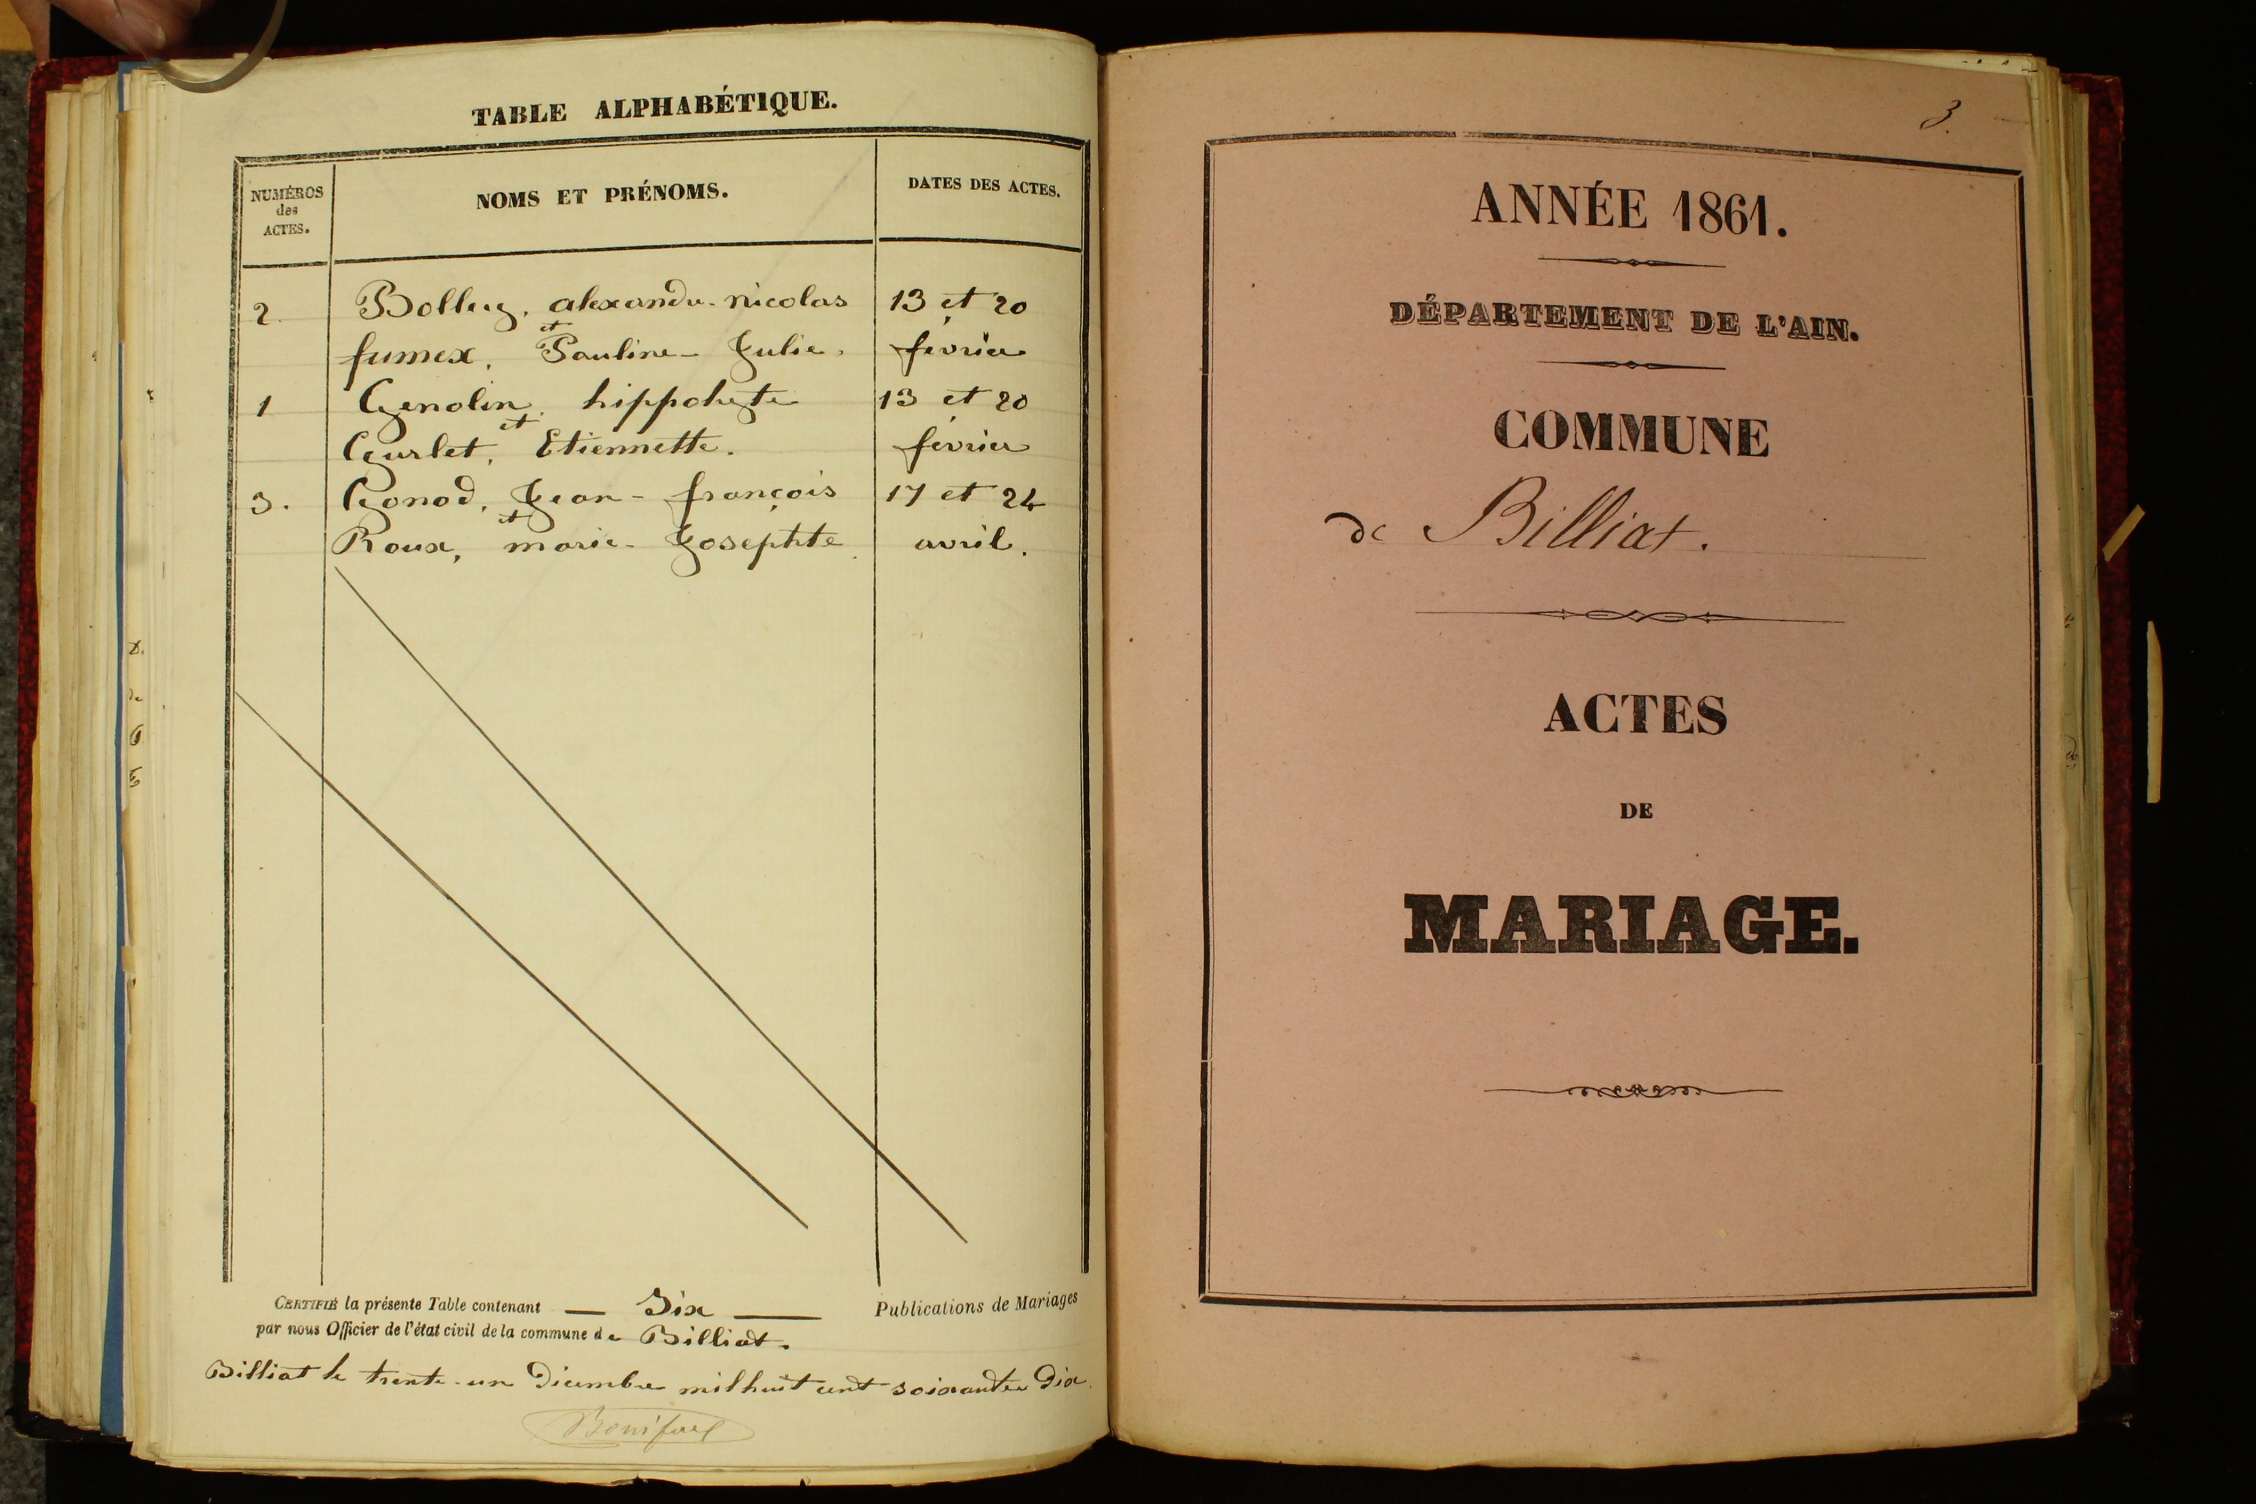 TABLE ALPHABÉTIQUE.
NUMÉROS
des
ACTES.
NOMS ET PRÉNOMS.
DATES DES ACTES.
2. Bolley, alexandre-nicolas 13 et 20
et
fumex, Pauline-Julie. février
1 Genolin, hippolyte 13 et 20
et
Gurlet, Etiennette. février
3. Gonod, Jean-françois 17 et 24
et
Roux, marie-Josephte avril.
CERTIFIÉ la présente Table contenant — Six — Publications de Mariages
par nous Officier de l'état civil de la commune de Billiat.
Billiat le trente-un Décembre mil huit cent soixante Dix
3.
ANNÉE 1861.
DÉPARTEMENT DE L'AIN.
COMMUNE
de Billiat.
ACTES
DE
MARIAGE.